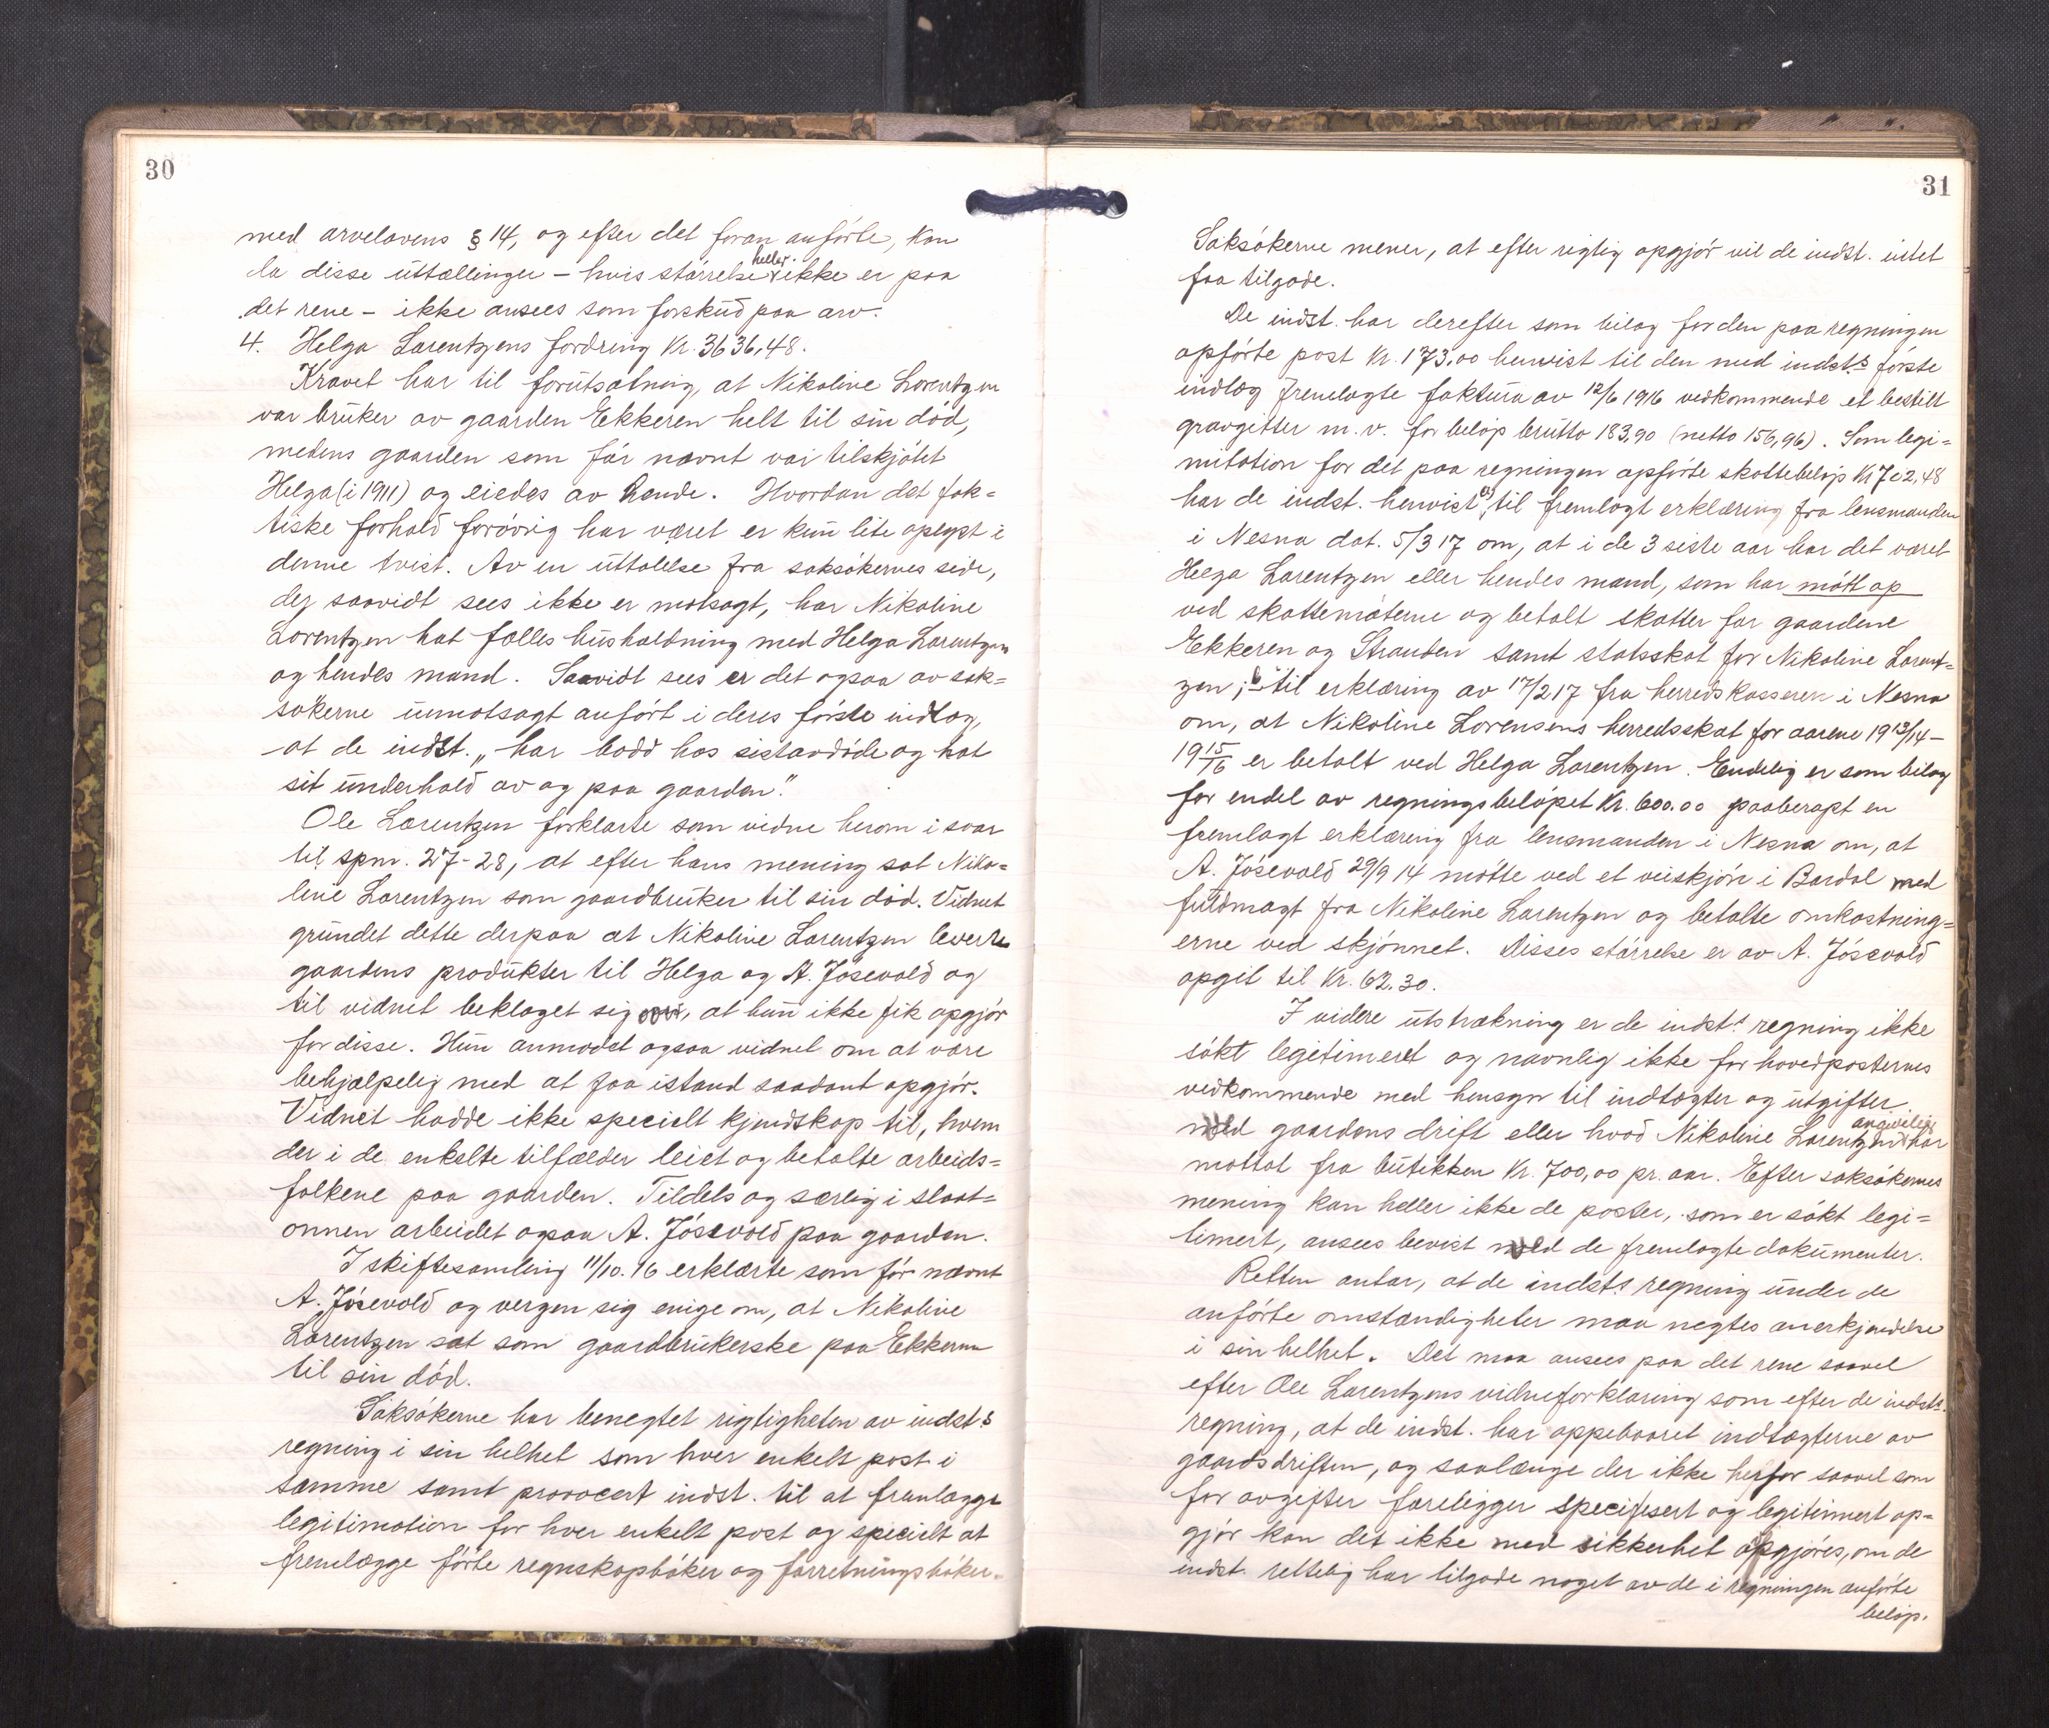 30
med arvelovens § 14, og efter det foran anförte, kan
da disse uttællinger – hvis störrelse heller ikke er paa
det rene – ikke ansees som forskud paa arv.
4. Helga Lorentzens fordring Kr. 3636,48.
Kravet har til forutsætning, at Nikoline Lorentzen
var bruker av gaarden Ekkeren helt til sin död,
medens gaarden som för nævnt var tilskjötet
Helga (i 1911) og eiedes av hende. Hvordan det fak=
tiske forhold forövrig har været er kun lite oplyst i
denne tvist. Av en uttalelse fra saksökernes side,
der saavidt sees ikke er motsagt, har Nikoline
Lorentzen hat fælles husholdning med Helga Lorentzen
og hendes mand. Saavidt sees er det ogsaa av sak=
sökerne umotsagt anfört i deres förste indlæg,
at de indst. „har bodd hos sistavdöde og hat
sit underhold av og paa gaarden".
Ole Lorentzen forklarte som vidne herom i svar
til spm. 27-28, at efter hans mening sat Niko=
line Lorentzen som gaardbruker til sin död. Vidnet
grundet dette derpaa at Nikoline Lorentzen leverte
gaardens produkter til Helga og A. Jösevold og
til vidnet beklaget sig over, at hun ikke fik opgjör
for disse. Hun anmodet ogsaa vidnet om at være
behjælpelig med at faa istand saadant opgjör.
Vidnet hadde ikke specielt kjendskap til, hvem
der i de enkelte tilfælder leiet og betalte arbeids=
folkene paa gaarden. Tildels og særlig i slaat=
onnen arbeidet ogsaa A. Jösevold paa gaarden.
I skiftesamling 11/10.16 erklærte som för nævnt
A. Jösevold og vergen sig enige om, at Nikoline
Lorentzen sat som gaardbrukerske paa Ekkeren
til sin död.
Saksökerne har benegtet rigtigheten av indst.s
regning i sin helhet som hver enkelt post i
samme samt provocert indst. til at fremlægge
legitimation for hver enkelt post og specielt at
fremlægge förte regnskapsböker og forretningsböker.
31
Saksökerne mener, at efter rigtig opgjör vil de indst. intet
faa tilgode.
De indst. har derefter som bilag for den paa regningen
opförte post Kr. 173,00 henvist til den med indst.s förste
indlæg fremlagte faktura av 12/6 1916 vedkommende et bestilt
gravgitter m.v. for belöp brutto 183,90 (netto 156,96). Som legi=
mitation for det paa regningen opförte skattebelöp Kr 702,48
har de indst. henvist a) til fremlagt erklæring fra lensmanden
i Nesna dat. 5/3 17 om, at i de 3 siste aar har det været
Helga Lorentzen eller hendes mand, som har mött op
ved skattemöterne og betalt skatter for gaardene
Ekkeren og Stranden samt statsskat for Nikoline Lorent=
zen; b) til erklæring av 17/2 17 fra herredskasseren i Nesna
om, at Nikoline Lorensens herredsskat for aarene 1913/14 –
1915/16 er betalt ved Helga Lorentzen. Endelig er som bilag
for endel av regningsbelöpet Kr. 600.00 paaberopt en
fremlagt erklæring fra lensmanden i Nesna om, at
A. Jösevold 29/9 14 mötte ved et veiskjön i Bardal med
fuldmagt fra Nikoline Lorentzen og betalte omkostning=
erne ved skjönnet. Disses störrelse er av A. Jösevold
opgit til Kr. 62.30.
I videre utstrækning er de indst.s regning ikke
sökt legitimert og navnlig ikke for hovedposternes
vedkommende med hensyn til indtægter og utgifter
ved gaardens drift eller hvad Nikoline Lorentzen angivelig har
mottat fra butikken Kr. 700,00 pr. aar. Efter saksökernes
mening kan heller ikke de poster, som er sökt legi=
timert, ansees bevist ved de fremlagte dokumenter.
Retten antar, at de indst.s regning under de
anförte omstændigheter maa negtes anerkjendelse
i sin helhet. Det maa ansees paa det rene saavel
efter Ole Lorentzens vidneforklaring som efter de indst.s
regning, at de indst. har oppebaaret indtægterne av
gaardsdriften, og saalænge der ikke herfor saavel som
for avgifter foreligger specifisert og legitimert op=
gjör kan det ikke med sikkerhet opgjöres, om de
indst. rettelig har tilgode noget av de i regningen anförte
belöp.